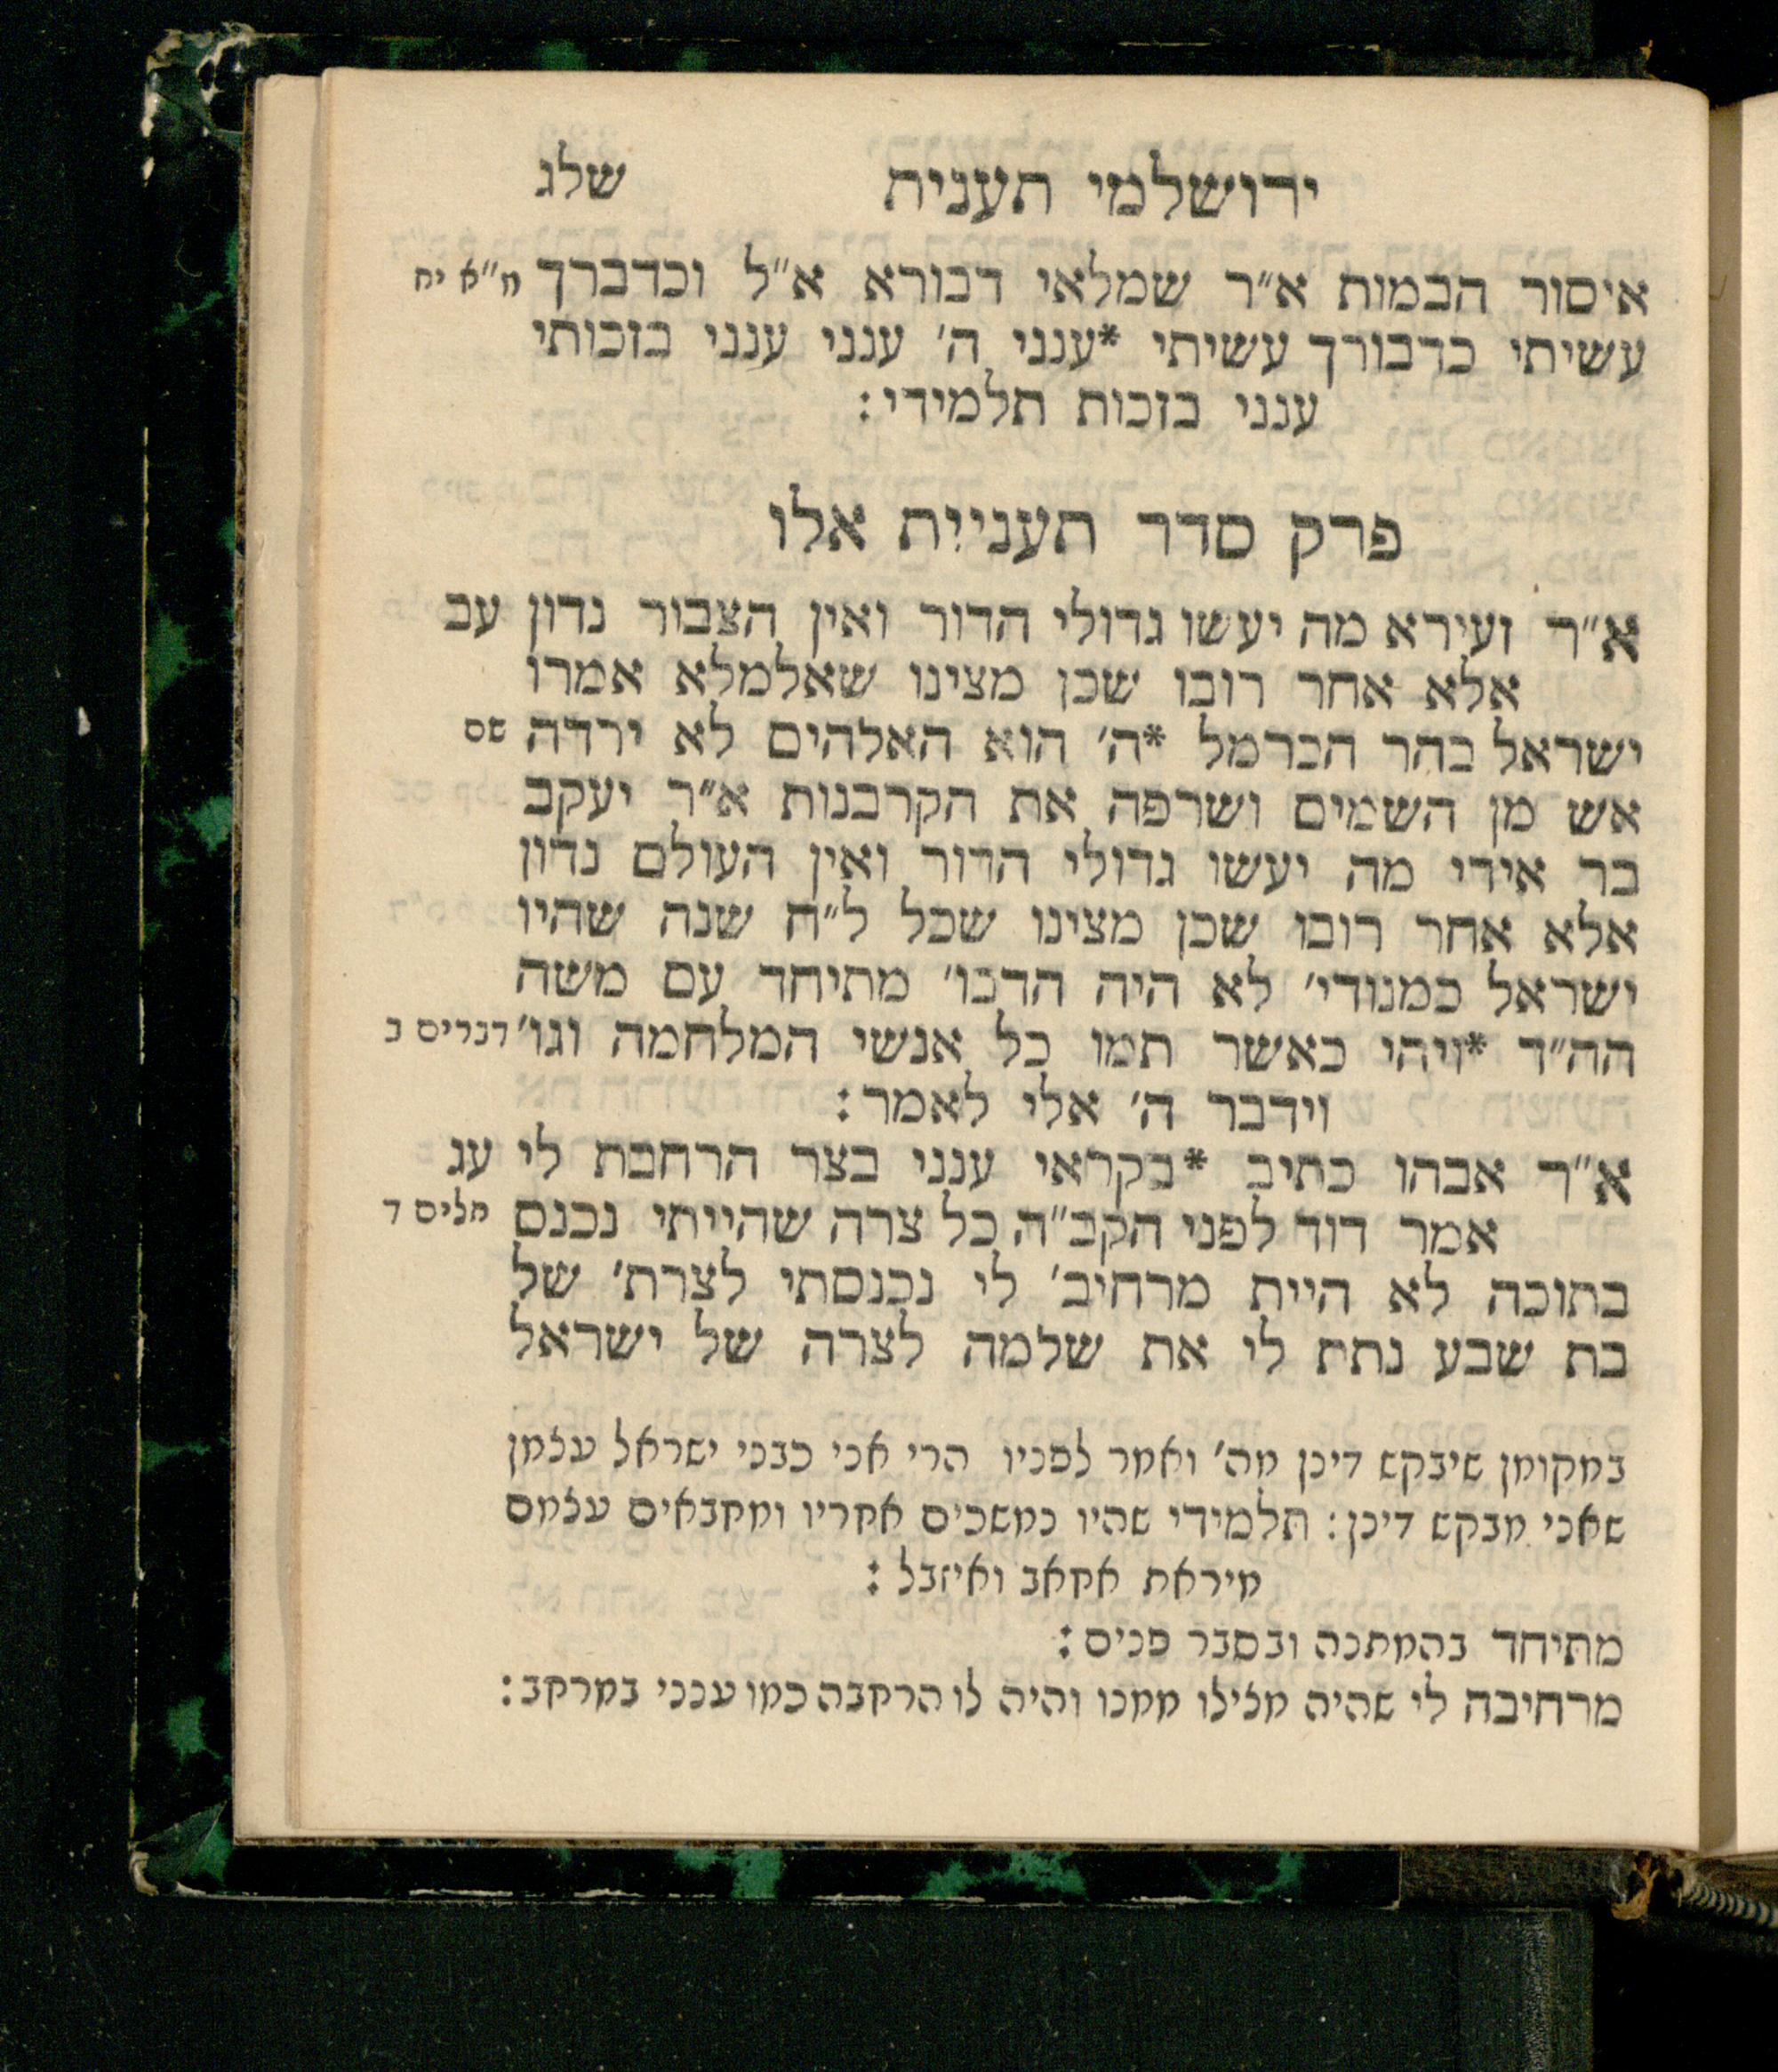 ירושלמי תענית שלג
איסור הבמות א״ר שמלאי דבורא א״ל וכדברך מ״א יח
עשיתי כדבורך עשיתי *ענני ה׳ ענני ענני בזכותי
ענני בזכות תלמידי:
פרק סדר תעניית אלו
א״ר זעירא מה יעשו גדולי הדור ואין הצבור נדון עב
אלא אחר רובו שכן מצינו שאלמלא אמרו
ישראל בהר הכרמל *ה׳ הוא האלהים לא ירדה שם
אש מן השמים ושרפה את הקרבנות א״ר יעקב
בר אידי מה יעשו גדולי הדור ואין העולם נדון
אלא אחר רובו שכן מצינו שכל ל״ח שנה שהיו
ישראל כמנודי׳ לא היה הדבו׳ מתיחד עם משה
הה״ד *ויהי כאשר תמו כל אנשי המלחמה וגו׳ דברים ב
וידבר ה׳ אלי לאמר:
א״ר אבהו כתיב *בקראי ענני בצר הרחבת לי עג
אמר דוד לפני הקב״ה כל צרה שהייתי נכנס תלים ד
בתוכה לא היית מרחיב׳ לי נכנסתי לצרת׳ של
בת שבע נתת לי את שלמה לצרה של ישראל
במקומן שיבקש דינן מה׳ ואמר לפניו הרי אני כבני ישראל עצמן
שאני מבקש דינן: תלמידי שהיו נמשכים אחריו ומחבאים עצמם
מיראת אחאב ואיזבל:
מתיחד בהמתנה ובסבר פנים:
מרחיבה לי שהיה מצילו ממנו והיה לו הרחבה כמו ענני במרחב: